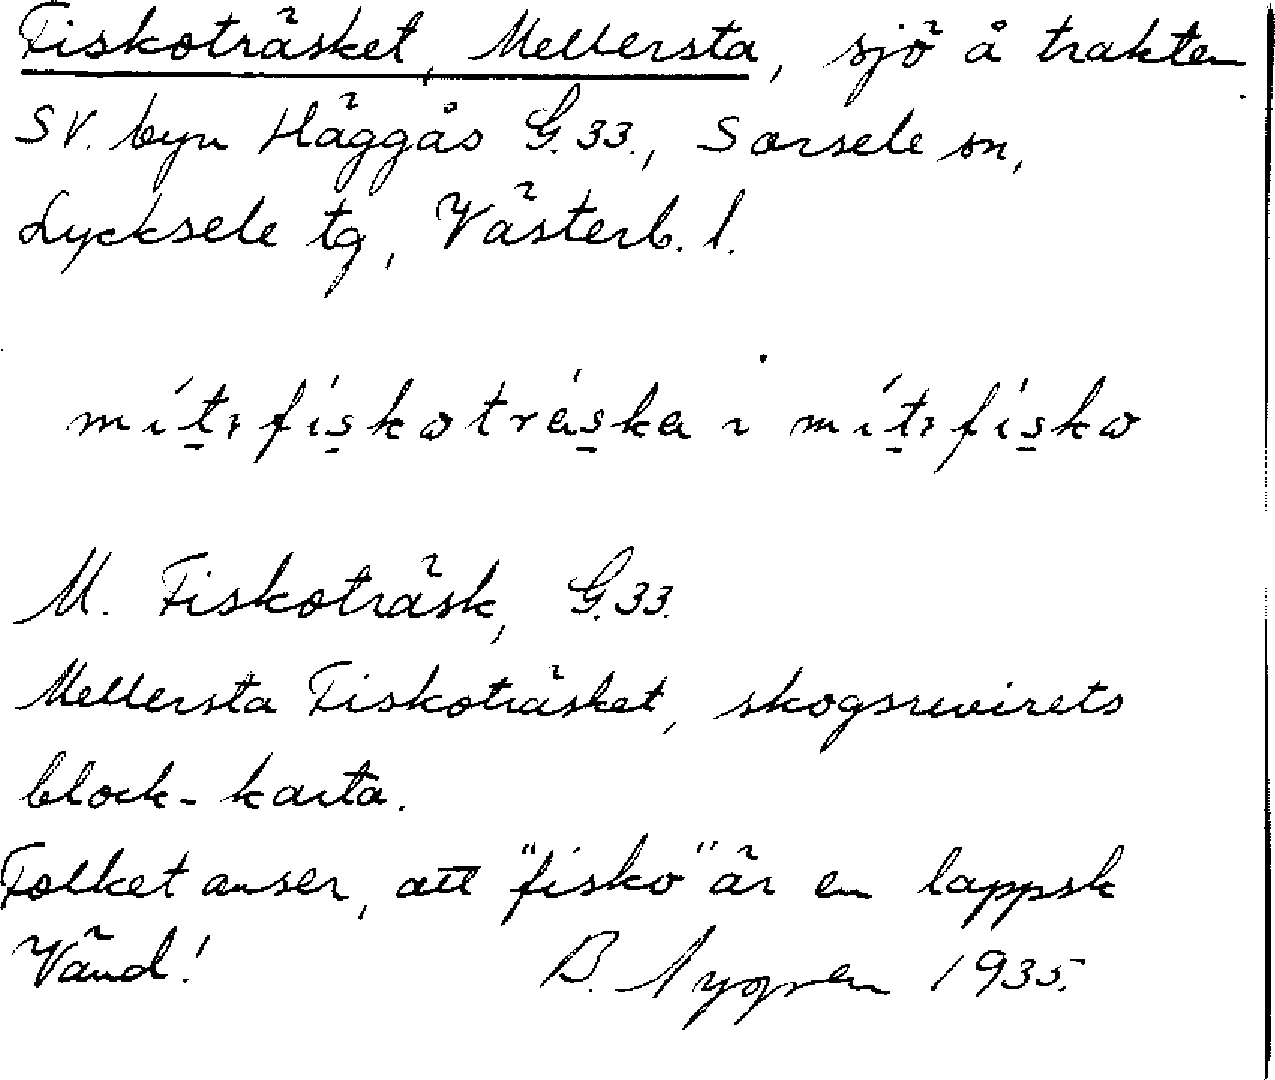 Fiskoträsket, Mellersta, sjö å trakten
SV. byn Häggås G.33., Sorsele sn,
Lycksele tg, Västerb. l.
mít, fiskoträska i mít, fisko
M. Fiskoträsk, G.33.
Mellersta Fiskoträsket, skogsrevirets
block-karta.
Folket anser, att "fisko" är en lappsk
Vänd! B. Nygren 1935.